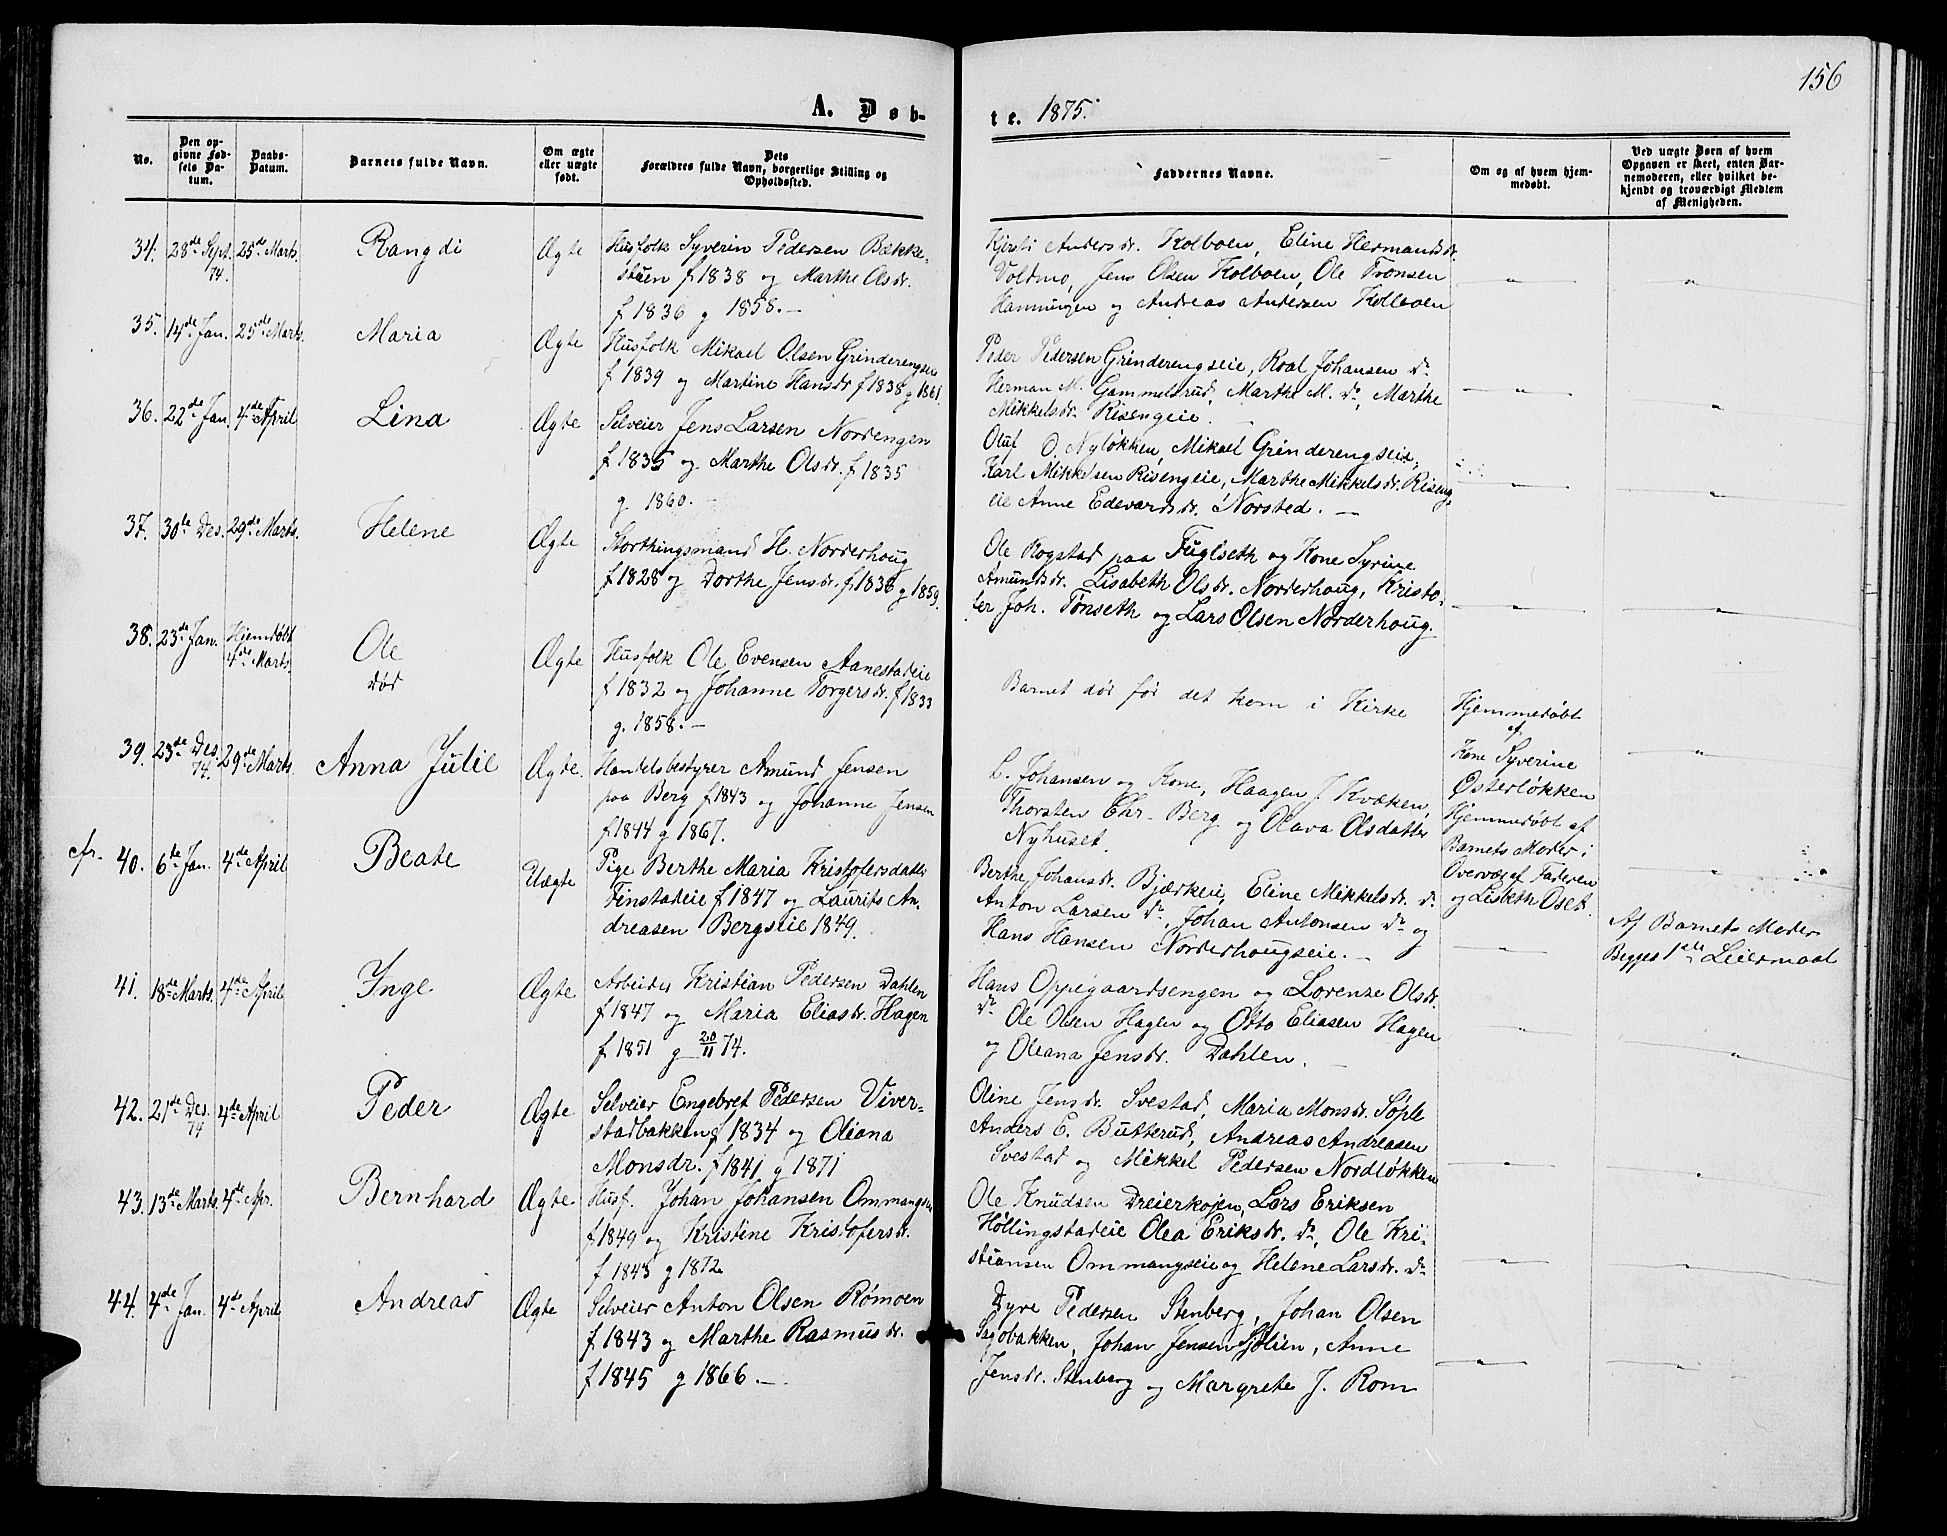 156
A. Døb-
te. 1875.
No.
Den op-
givne Fød-
sels Da-
tum.
Daabs-
Datum.
Barnets fulde Navn.
Om ægte
eller uægte
født.
Dets
Forældres fulde Navn, borgerlige Stilling og
Opholdssted.
Faddernes Navne.
Om og af hvem hjem-
medøbt.
Ved uægte Børn af hvem
Opgaven er skeet, enten Bar-
nemoderen, eller hvilket be-
kjendt og troværdigt Medlem
af Menigheden.
34. 28de Sept. 74. 25de Marts. Rangdi Ægte
Husfolk Syverin Pedersen Bække-
stuen f 1838 og Marthe Olsdr.
f 1836 g 1858.—
Kjersti Andersdr. Kolboen, Eline Hermandsdr.
Voldmo, Jens Olsen Kolboen, Ole Tronsen
Hamningen og Andreas Andersen Kolboen
35. 14de Jan. 25de Marts. Maria Ægte
Husfolk Mikael Olsen Grinderengseie
f 1839 og Martine Hansdr f 1838 g 1861.
Peder Pedersen Grinderengseie, Roal Johansen do
Herman M. Gammelsrud, Marthe M. do, Marthe
Mikkelsdr. Risengeie.
36. 22de Jan. 4de April Lina Ægte
Selveier Jens Larsen Nordengen
f 1835 og Marthe Olsdr. f 1835
g 1860.
Oluf O. Nyløkken, Mikael Grinderengseie,
Karl Mikkelsen Risengeie, Marthe Mikkelsdr. Riseng-
eie Anne Edevardsdr. Norsted. —
37. 30te Des. 29de Marts. Helene Ægte
Storthingsmand H. Norderhoug
f 1828 og Dorthe Jensdr. f 1836 g 1859.
Ole Rogstad paa Fuglseth og Kone Syrine
Amundsdr. Lisabeth Olsdr. Norderhoug, Kristo-
fer Joh. Tønseth og Lars Olsen Norderhoug.
38. 23de Jan. Hjemdøbt 4de Marts. Ole Død Ægte
Husfolk Ole Evensen Aanestadeie
f 1832 og Johanne Torgersdr. f 1833
g. 1858.—
Barnet dør før det kom i Kirke
Hjemmedøbt
af
Kone Syverine
Østerløkken
39. 23de Des 74. 29de Marts. Anna Julie Ægte.
Handelsbestyrer Amund Jensen
paa Berg f 1843 og Johanne Jensen
f 1844 g 1867.
L. Johansen og Kone, Haagen J. Kvæken,
Thorsten Chr. Berg og Olava Olsdatter
Nyhuset.
Hjemmedøbt af
Barnets Moder i
Overvær af Faderen
og Lisbeth Oset.
cfr. 40. 6te Jan. 4de April Beate Uægte
Pige Berthe Maria Kristofersdatter
Finstadeie f 1847 og Laurits An-
dreasen Bergseie 1849.
Berthe Johansdr. Bjærkeie, Eline Mikkelsdr. do
Anton Larsen do, Johan Antonsen do og
Hans Hansen Norderhougseie.—
Af Barnets Moder
Begges 1ste Leiermaal
41. 18de Marts. 4de April Inge Ægte
Arbeider Kristian Pedersen Dahlen
f 1847 og Maria Eliasdr. Hagen
f 1851 g 20/11 74.
Hans Oppegaardsengen og Lorense Olsdr.
do Ole Olsen Hagen og Otto Eliasen Hagen
og Oleana Jensdr. Dahlen.
42. 21de Des. 74 4de April Peder Ægte
Selveier Engebret Pedersen Viver-
stadbakken f 1834 og Oleana
Monsdr. f 1841 g 1871
Oline Jensdr. Svestad, Maria Monsdr. Søple
Anders E. Butterud, Andreas Andreasen
Svestad og Mikkel Pedersen Nordløkken
43. 13de Marts. 4de Apr. Bernhard Ægte
Husf. Johan Johansen Ommangseie
f 1849 og Kristine Kristofersdr.
f 1843 g 1872
Ole Knudsen Dreierkojen, Lars Eriksen
Høllingstadeie Olea Eriksdr. do, Ole Kri-
stiansen Ommangseie og Helene Larsdr. do
44. 4de Jan. 4de April Andreas Ægte
Selveier Anton Olsen Rømoen
f 1843 og Marthe Rasmusdr.
f 1845 g 1866.—
Dyre Pedersen Stenberg, Johan Olsen
Sagbakken, Johan Jensen Sjølien, Anne
Jensdr. Stenberg og Margrete J. Rom